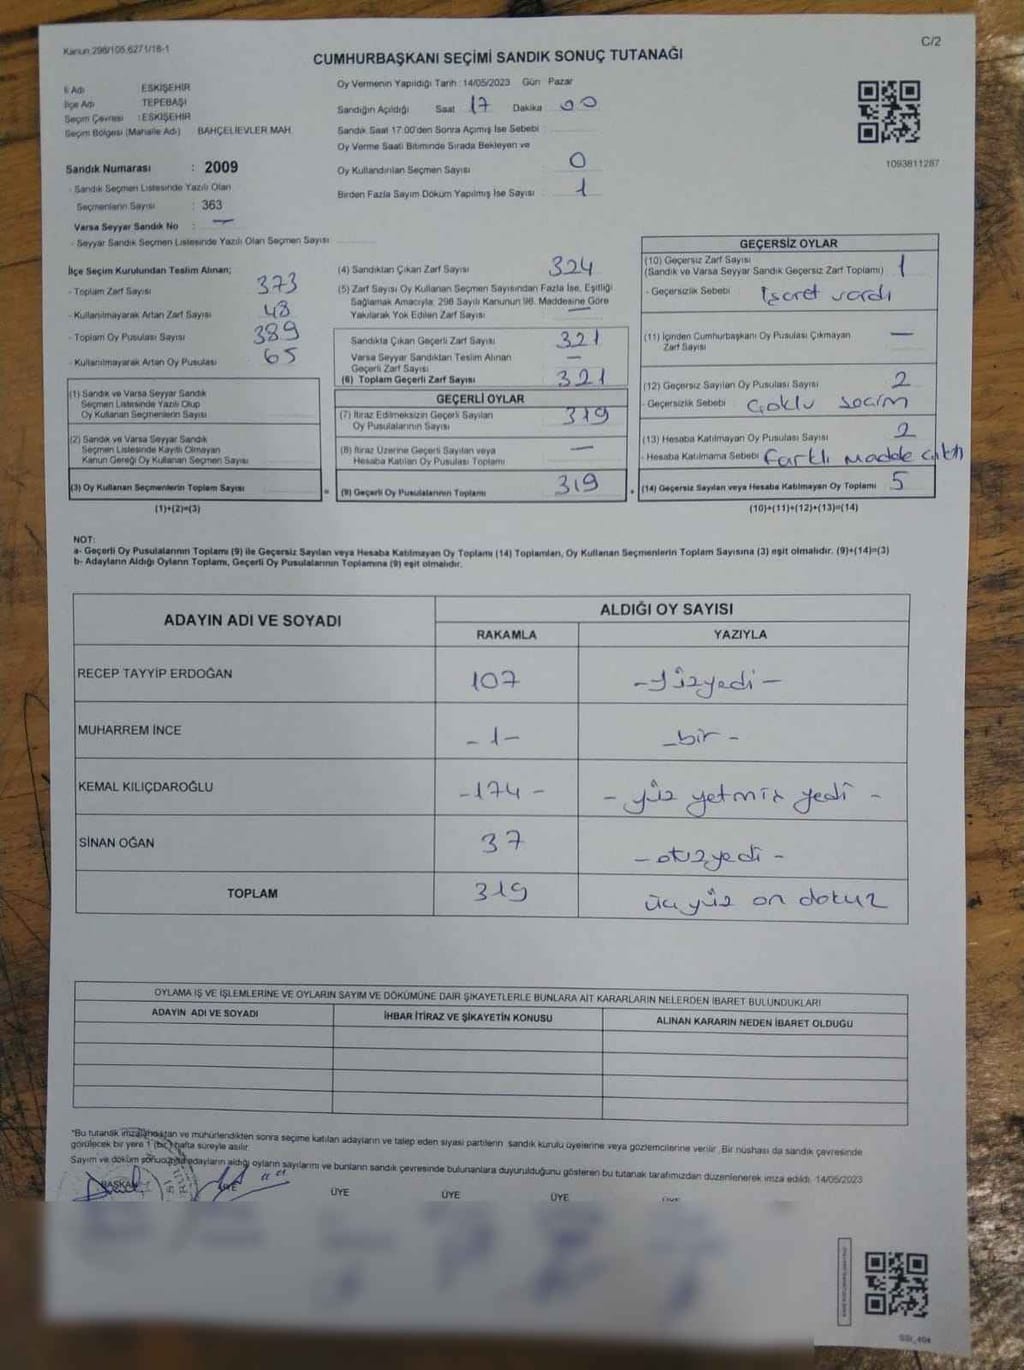 Kanun:298/105,6271/18-1
C/2
CUMHURBAŞKANI SEÇİMİ SANDIK SONUÇ TUTANAĞI
İl Adı ESKİŞEHİR
İlçe Adı TEPEBAŞI
Seçim Çevresi : ESKİŞEHİR
Seçim Bölgesi (Mahalle Adı) BAHÇELİEVLER MAH.
Sandık Numarası : 2009
- Sandık Seçmen Listesinde Yazılı Olan
Seçmenlerin Sayısı : 363
Varsa Seyyar Sandık No : —
- Seyyar Sandık Seçmen Listesinde Yazılı Olan Seçmen Sayısı
Oy Vermenin Yapıldığı Tarih : 14/05/2023 Gün Pazar
Sandığın Açıldığı Saat 17 Dakika 00
Sandık Saat 17:00'den Sonra Açımış İse Sebebi
Oy Verme Saati Bitiminde Sırada Bekleyen ve
Oy Kullandırılan Seçmen Sayısı 0
Birden Fazla Sayım Döküm Yapılmış İse Sayısı 1
1093811287
İlçe Seçim Kurulundan Teslim Alınan;
- Toplam Zarf Sayısı 373
- Kullanılmayarak Artan Zarf Sayısı 48
- Toplam Oy Pusulası Sayısı 389
- Kullanılmayarak Artan Oy Pusulası 65
(1) Sandık ve Varsa Seyyar Sandık
Seçmen Listesinde Yazılı Olup
Oy Kullanan Seçmenlerin Sayısı
(2) Sandık ve Varsa Seyyar Sandık
Seçmen Listesinde Kayıtlı Olmayan
Kanun Gereği Oy Kullanan Seçmen Sayısı
(3) Oy Kullanan Seçmenlerin Toplam Sayısı
(1)+(2)=(3)
(4) Sandıktan Çıkan Zarf Sayısı 324
(5) Zarf Sayısı Oy Kullanan Seçmen Sayısından Fazla İse, Eşitliği
Sağlamak Amacıyla; 298 Sayılı Kanunun 98. Maddesine Göre
Yakılarak Yok Edilen Zarf Sayısı —
Sandıkta Çıkan Geçerli Zarf Sayısı 321
Varsa Seyyar Sandıktan Teslim Alınan
Geçerli Zarf Sayısı —
(6) Toplam Geçerli Zarf Sayısı 321
GEÇERLİ OYLAR
(7) İtiraz Edilmeksizin Geçerli Sayılan
Oy Pusulalarının Sayısı 319
(8) İtiraz Üzerine Geçerli Sayılan veya
Hesaba Katılan Oy Pusulası Toplamı —
= (9) Geçerli Oy Pusulalarının Toplamı 319
GEÇERSİZ OYLAR
(10) Geçersiz Zarf Sayısı
(Sandık ve Varsa Seyyar Sandık Geçersiz Zarf Toplamı) 1
- Geçersizlik Sebebi işaret vardı
(11) İçinden Cumhurbaşkanı Oy Pusulası Çıkmayan
Zarf Sayısı —
(12) Geçersiz Sayılan Oy Pusulası Sayısı 2
- Geçersizlik Sebebi çoklu seçim
(13) Hesaba Katılmayan Oy Pusulası Sayısı 2
- Hesaba Katılmama Sebebi farklı madde çıktı
+ (14) Geçersiz Sayılan veya Hesaba Katılmayan Oy Toplamı 5
(10)+(11)+(12)+(13)=(14)
NOT:
a- Geçerli Oy Pusulalarının Toplamı (9) ile Geçersiz Sayılan veya Hesaba Katılmayan Oy Toplamı (14) Toplamları, Oy Kullanan Seçmenlerin Toplam Sayısına (3) eşit olmalıdır. (9)+(14)=(3)
b- Adayların Aldığı Oyların Toplamı, Geçerli Oy Pusulalarının Toplamına (9) eşit olmalıdır.
ADAYIN ADI VE SOYADI
ALDIĞI OY SAYISI
RAKAMLA YAZIYLA
RECEP TAYYİP ERDOĞAN 107 - yüzyedi -
MUHARREM İNCE - 1 - - bir -
KEMAL KILIÇDAROĞLU - 174 - - yüz yetmiş yedi -
SİNAN OĞAN 37 - otuzyedi -
TOPLAM 319 üçyüz on dokuz
OYLAMA İŞ VE İŞLEMLERİNE VE OYLARIN SAYIM VE DÖKÜMÜNE DAİR ŞİKAYETLERLE BUNLARA AİT KARARLARIN NELERDEN İBARET BULUNDUKLARI
ADAYIN ADI VE SOYADI İHBAR İTİRAZ VE ŞİKAYETİN KONUSU ALINAN KARARIN NEDEN İBARET OLDUĞU
*Bu tutanak imzalandıktan ve mühürlendikten sonra seçime katılan adayların ve talep eden siyasi partilerin sandık kurulu üyelerine veya gözlemcilerine verilir. Bir nüshası da sandık çevresinde
görülecek bir yere 1 (bir) hafta süreyle asılır.
Sayım ve döküm sonucunda adayların aldığı oyların sayılarını ve bunların sandık çevresinde bulunanlara duyurulduğunu gösteren bu tutanak tarafımızdan düzenlenerek imza edildi. 14/05/2023
BAŞKAN ÜYE ÜYE ÜYE ÜYE